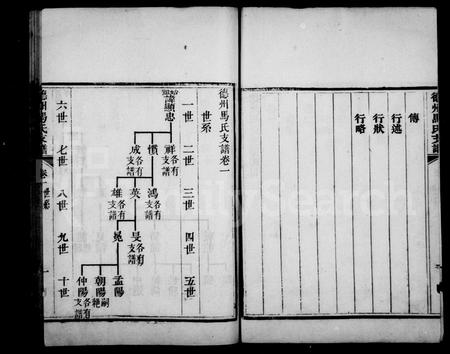 德州馬氏支譜
傳
行述
行狀
行略
德州馬氏支譜卷一
世系
一世 二世 三世 四世 五世
始祖諱顯忠
祥 各有支譜
慣
成 各有支譜
鴻 各有支譜
英
雄 各有支譜
旻 各有支譜
冕
孟陽
朝陽 嗣絶
仲陽 各有支譜
六世 七世 八世 九世 十世
德州馬氏支譜 卷一 世系